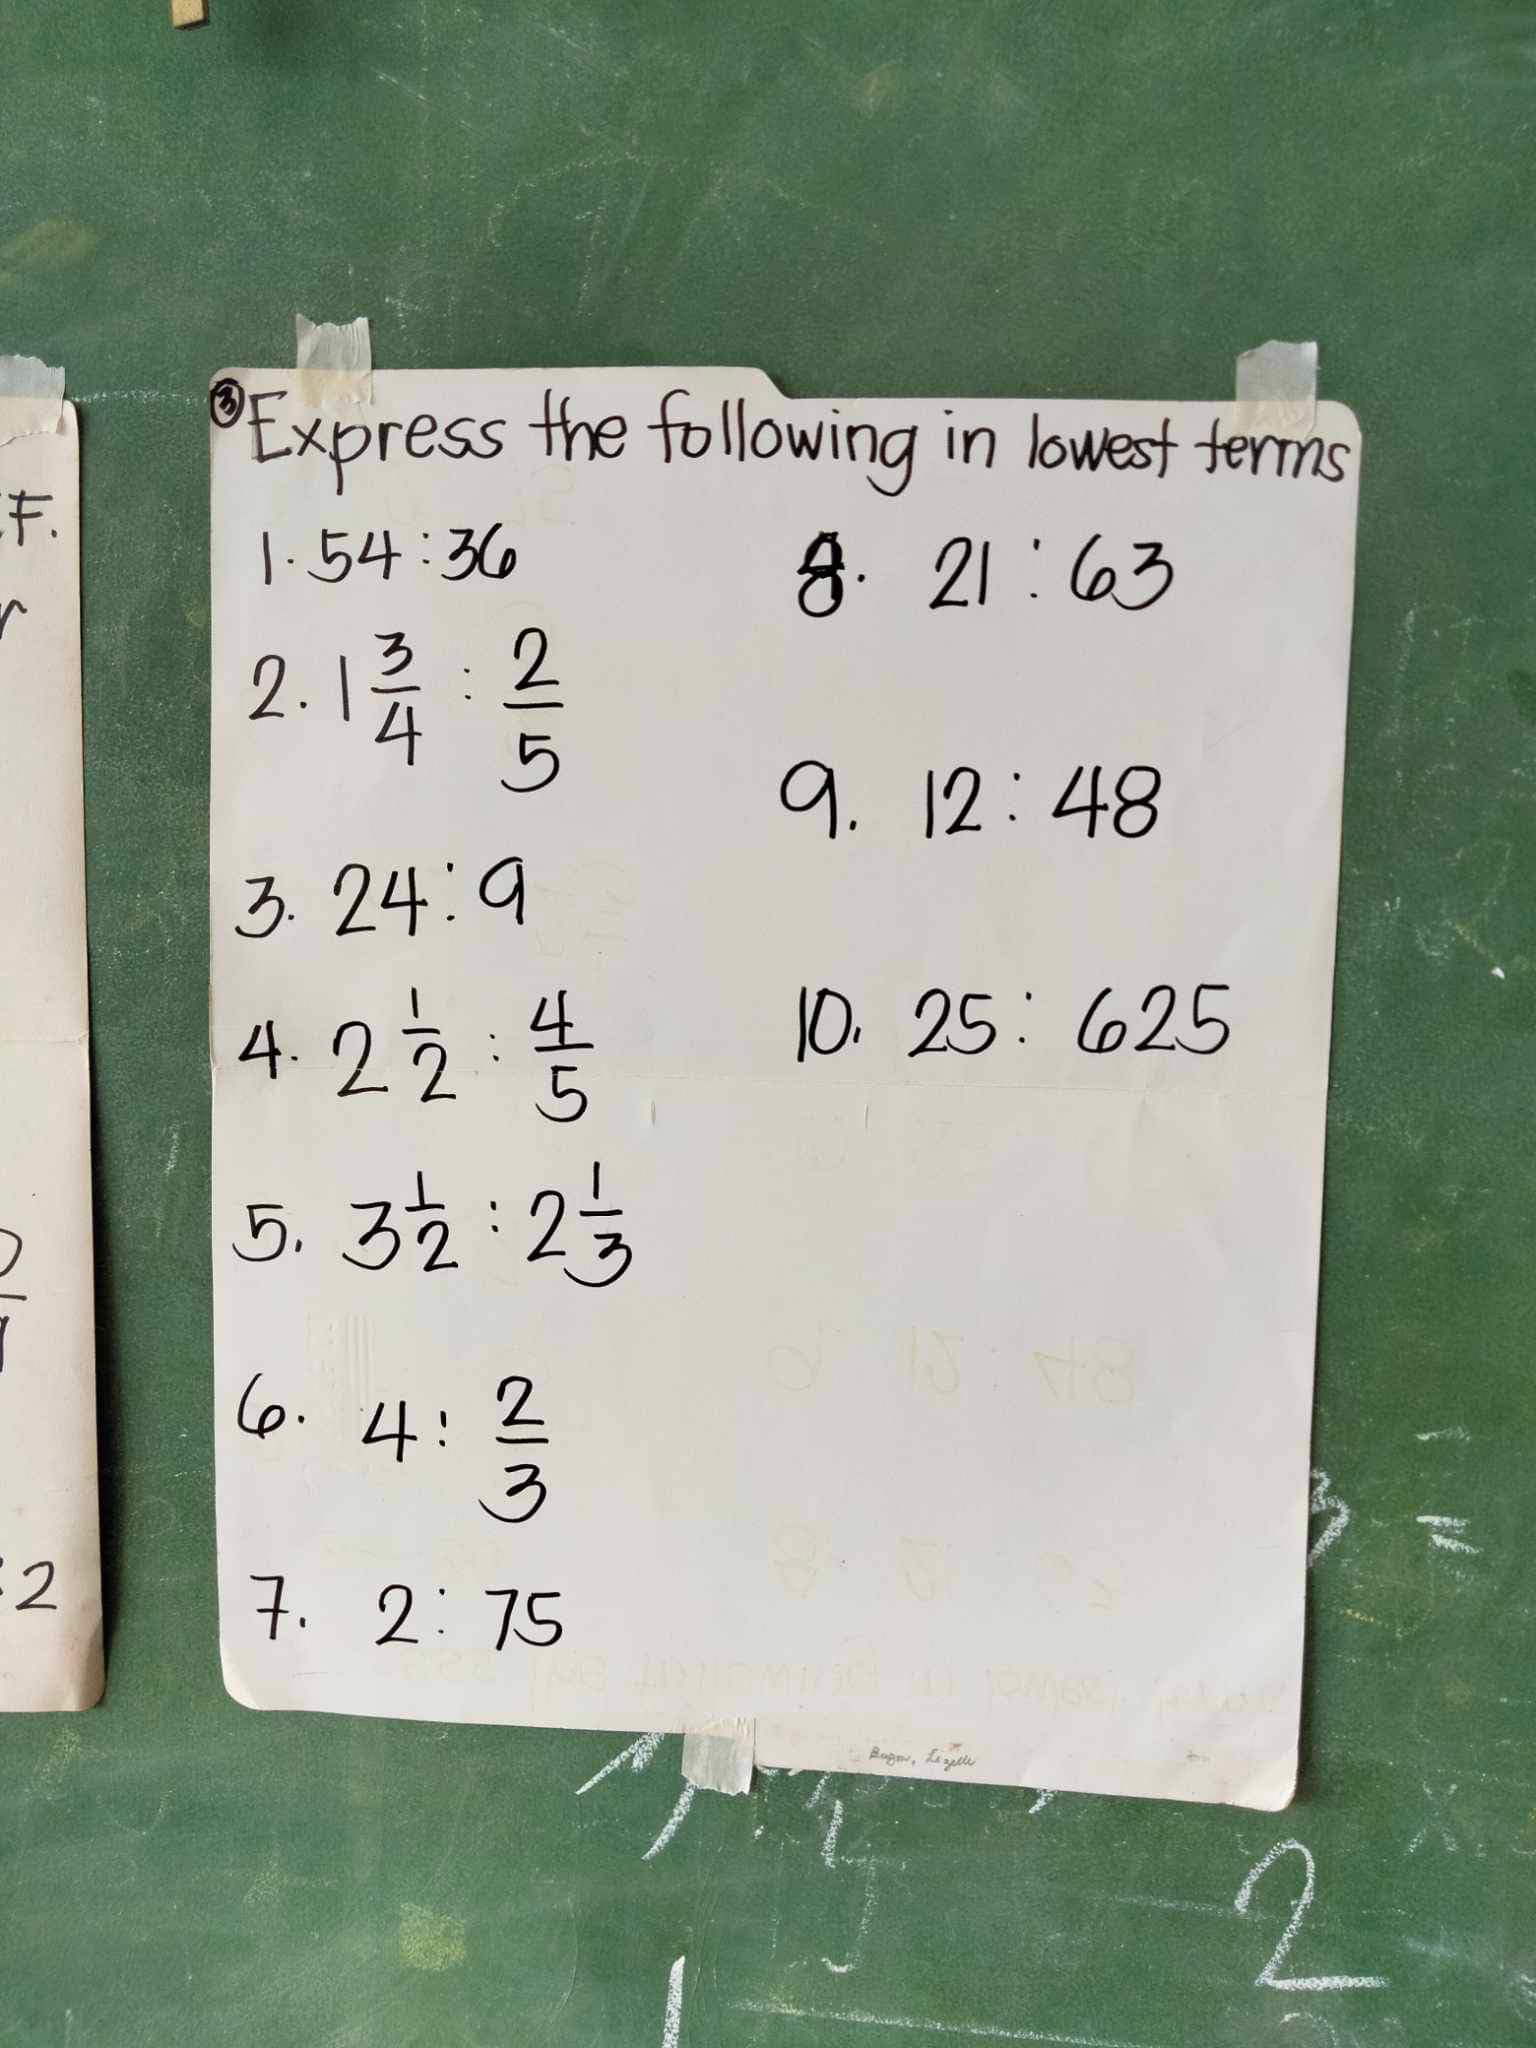 ③ Express the following in lowest terms
1. 54 : 36
2. 1 3/4 : 2/5
3. 24 : 9
4. 2 1/2 : 4/5
5. 3 1/2 : 2 1/3
6. 4 : 2/3
7. 2 : 75
8. 21 : 63
9. 12 : 48
10. 25 : 625
F.
r
: 2
3 =
2